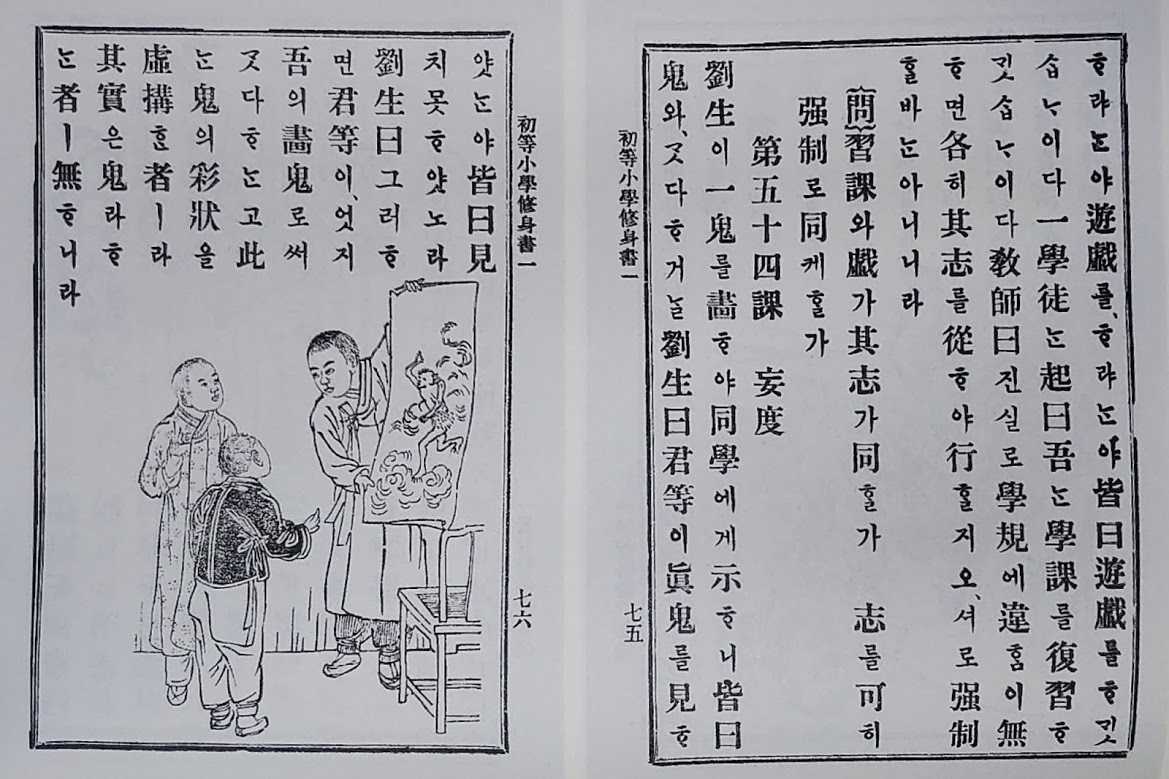 ᄒᆞ랴ᄂᆞᆫ야遊戲를、ᄒᆞ랴ᄂᆞᆫ야皆曰遊戲를ᄒᆞ깃
습ᄂᆞ이다一學徒ᄂᆞᆫ起曰吾ᄂᆞᆫ學課를復習ᄒᆞ
깃습ᄂᆞ이다敎師曰진실로學規에違ᄒᆞᆷ이無
ᄒᆞ면各히其志를從ᄒᆞ야行ᄒᆞᆯ지오、셔로强制
ᄒᆞᆯ바ᄂᆞᆫ아니니라
問習課와戲가其志가同ᄒᆞᆯ가 志를可히
强制로同케ᄒᆞᆯ가
第五十四課 妄度
劉生이一鬼를畫ᄒᆞ야同學에게示ᄒᆞ니皆曰
鬼와、ᄀᆞᆺ다ᄒᆞ거ᄂᆞᆯ劉生曰君等이眞鬼를見ᄒᆞ
初等小學修身書一
七五
初等小學修身書一
七六
얏ᄂᆞᆫ야皆曰見
치못ᄒᆞ얏노라
劉生曰그러ᄒᆞ
면君等이、엇지
吾의畫鬼로써
ᄀᆞᆺ다ᄒᆞᄂᆞᆫ고此
ᄂᆞᆫ鬼의彩狀을
虛搆ᄒᆞᆫ者ㅣ라
其實은鬼라ᄒᆞ
ᄂᆞᆫ者ㅣ無ᄒᆞ니라